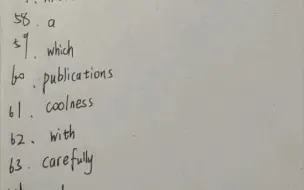 58. a
59. which
60. publications
61. coolness
62. with
63. carefully